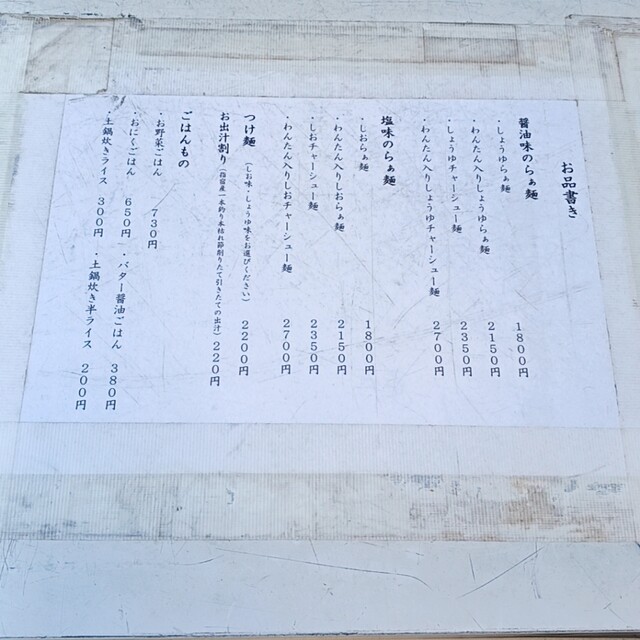 お品書き
醤油味のらぁ麺
・しょうゆらぁ麺 1800円
・わんたん入りしょうゆらぁ麺 2150円
・しょうゆチャーシュー麺 2350円
・わんたん入りしょうゆチャーシュー麺 2700円
塩味のらぁ麺
・しおらぁ麺 1800円
・わんたん入りしおらぁ麺 2150円
・しおチャーシュー麺 2350円
・わんたん入りしおチャーシュー麺 2700円
つけ麺 (しお味・しょうゆ味をお選びください) 2200円
お出汁割り (指宿産一本釣り本枯れ節削りたて引きたての出汁) 220円
ごはんもの
・お野菜ごはん 730円
・おにくごはん 650円 ・バター醤油ごはん 380円
・土鍋炊きライス 300円 ・土鍋炊き半ライス 200円